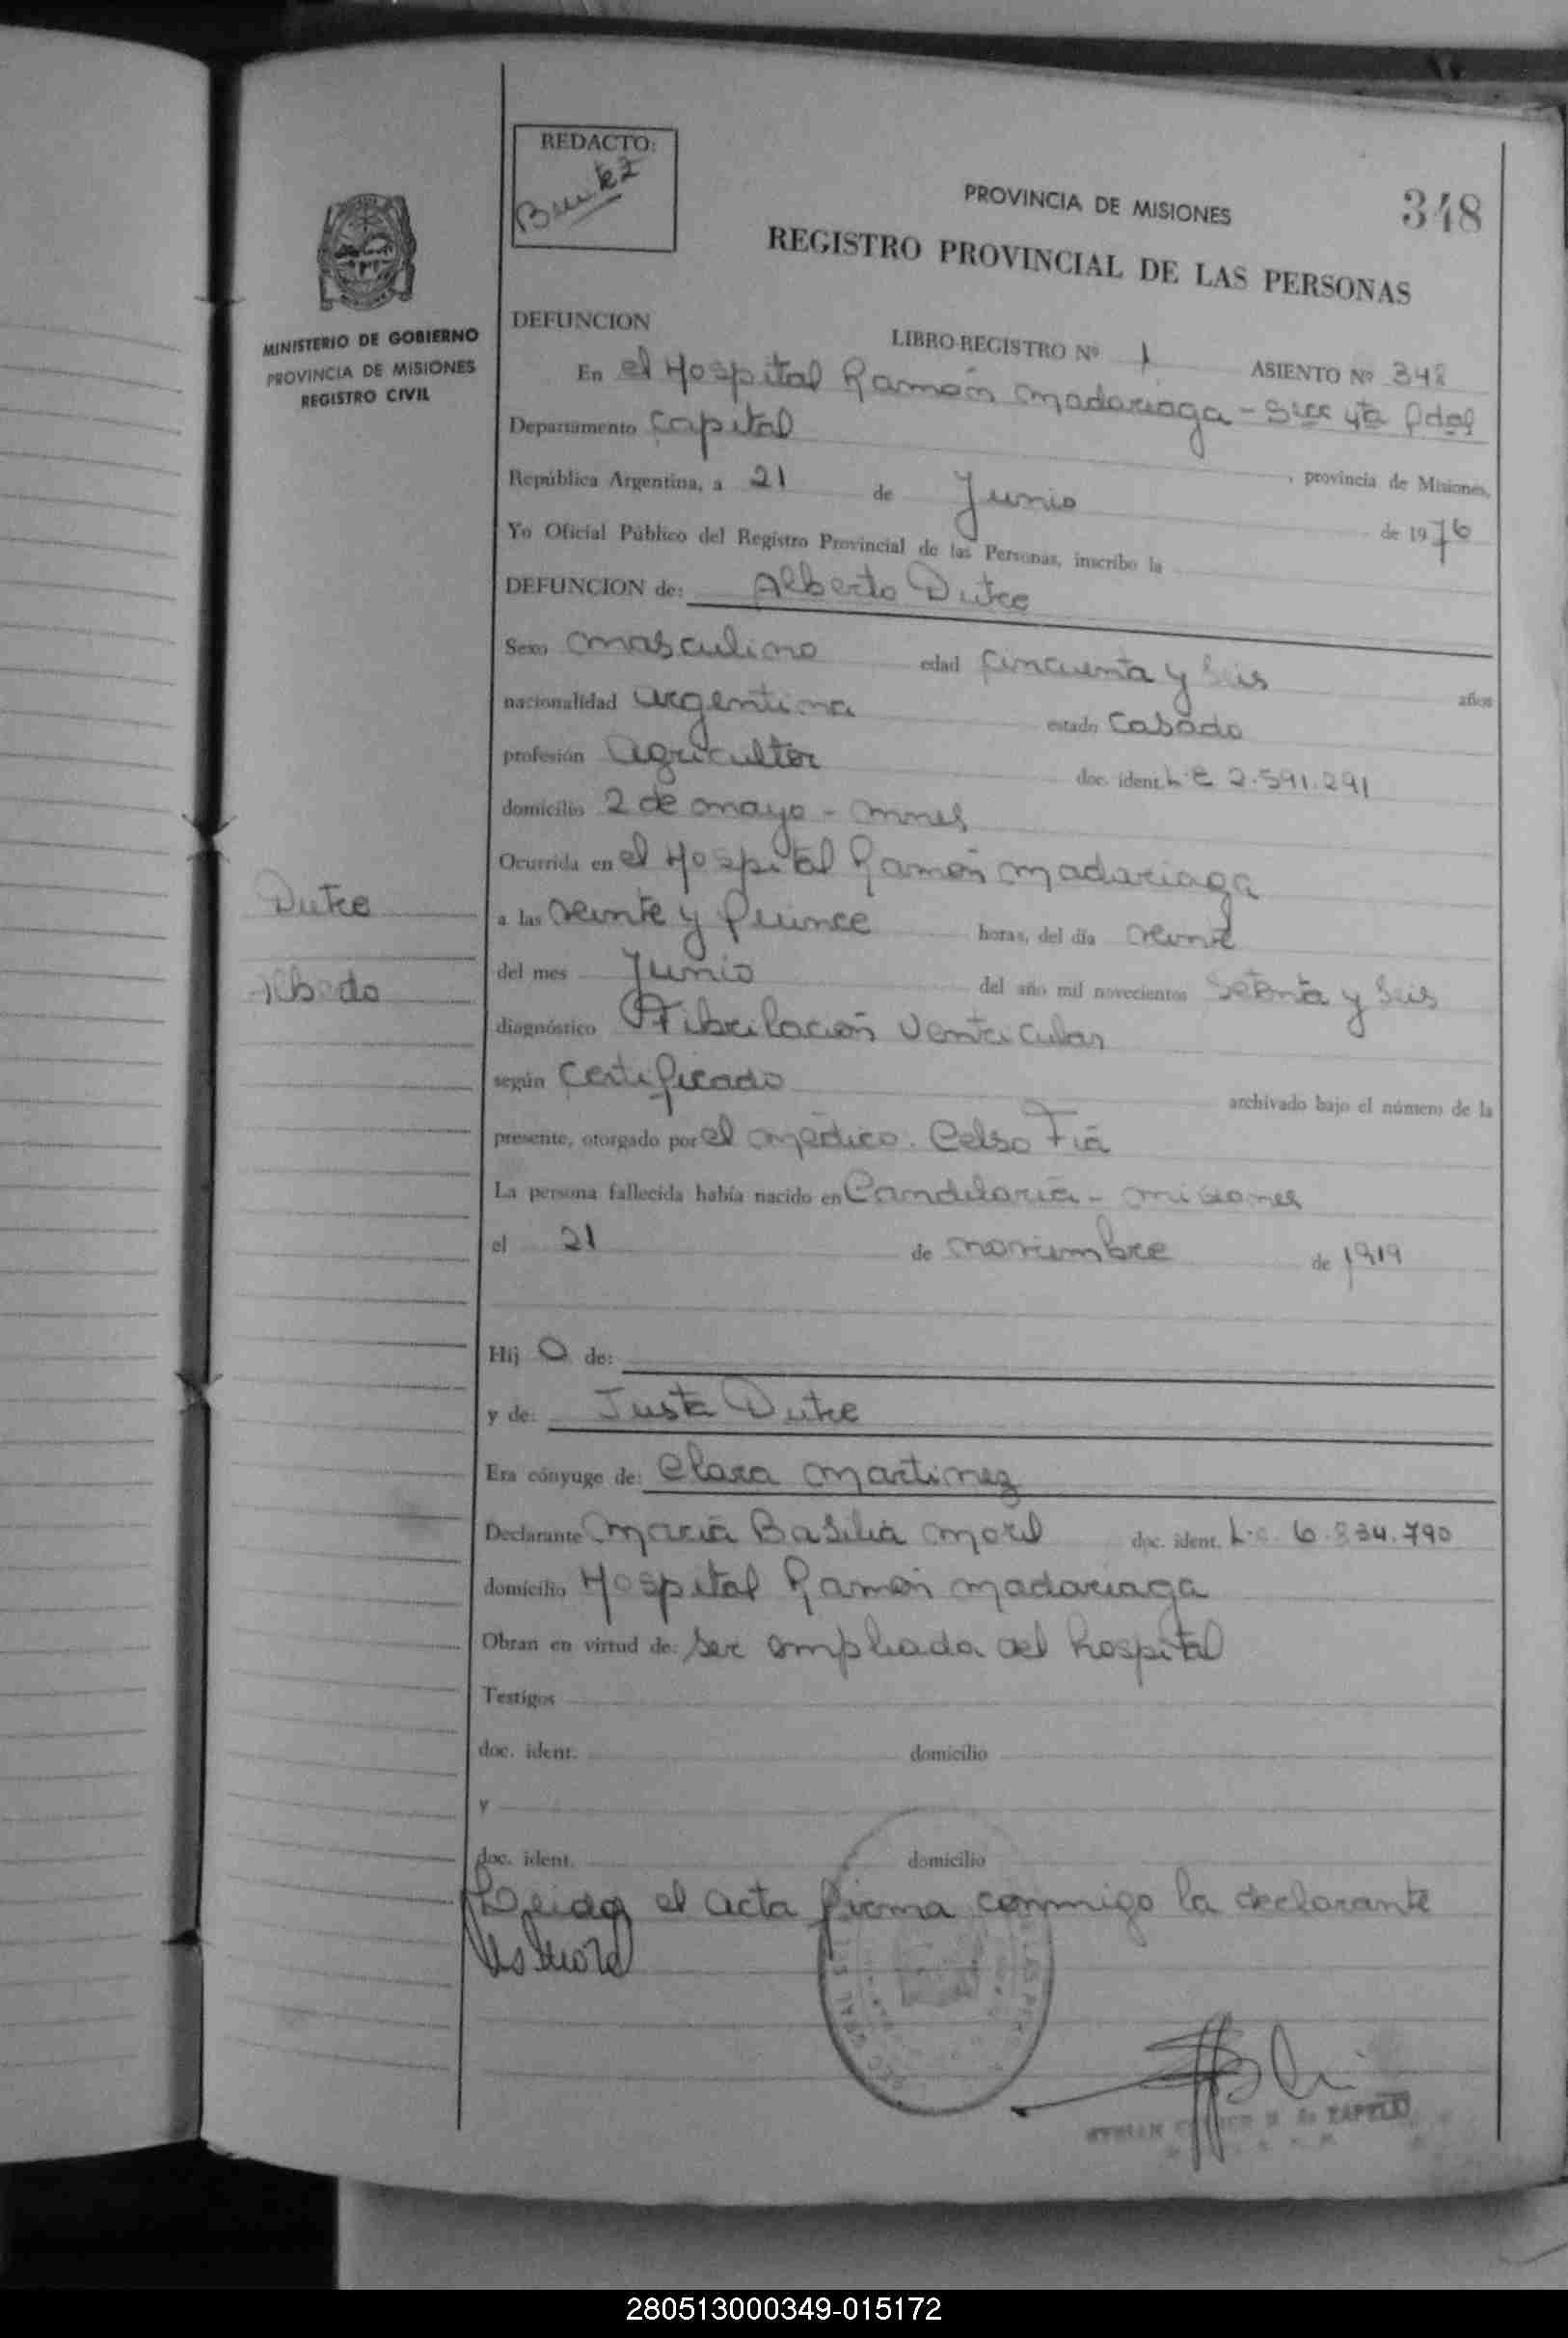 REDACTO:
PROVINCIA DE MISIONES
348
REGISTRO PROVINCIAL DE LAS PERSONAS
MINISTERIO DE GOBIERNO
PROVINCIA DE MISIONES
REGISTRO CIVIL
DEFUNCION
LIBRO-REGISTRO Nº 1 ASIENTO Nº 348
En el Hospital Ramón Madariaga - Secc 4ta Pdas
Departamento Capital , provincia de Misiones,
República Argentina, a 21 de Junio de 1976
Yo Oficial Público del Registro Provincial de las Personas, inscribo la
DEFUNCION de: Alberto Dutre
Sexo masculino edad cincuenta y seis años
nacionalidad argentina estado Casado
profesión agricultor doc. ident. L E 2.591.291
domicilio 2 de mayo - Mnes
Ocurrida en el Hospital Ramón Madariaga
Dutre
a las veinte y quince horas, del día veinte
Alberto
del mes Junio del año mil novecientos Setenta y Seis
diagnóstico Fibrilación Ventricular
según Certificado archivado bajo el número de la
presente, otorgado por el médico. Celso Fiá
La persona fallecida había nacido en Candelaria - Misiones
el 21 de noviembre de 1919
Hij o de:
y de: Justa Dutre
Era cónyuge de: Clara Martinez
Declarante María Basilia Morel doc. ident. L.C. 6.834.790
domicilio Hospital Ramón Madariaga
Obran en virtud de: ser empleada del hospital
Testigos
doc. ident. domicilio
y
doc. ident. domicilio
Leida el acta firma conmigo la declarante
280513000349-015172